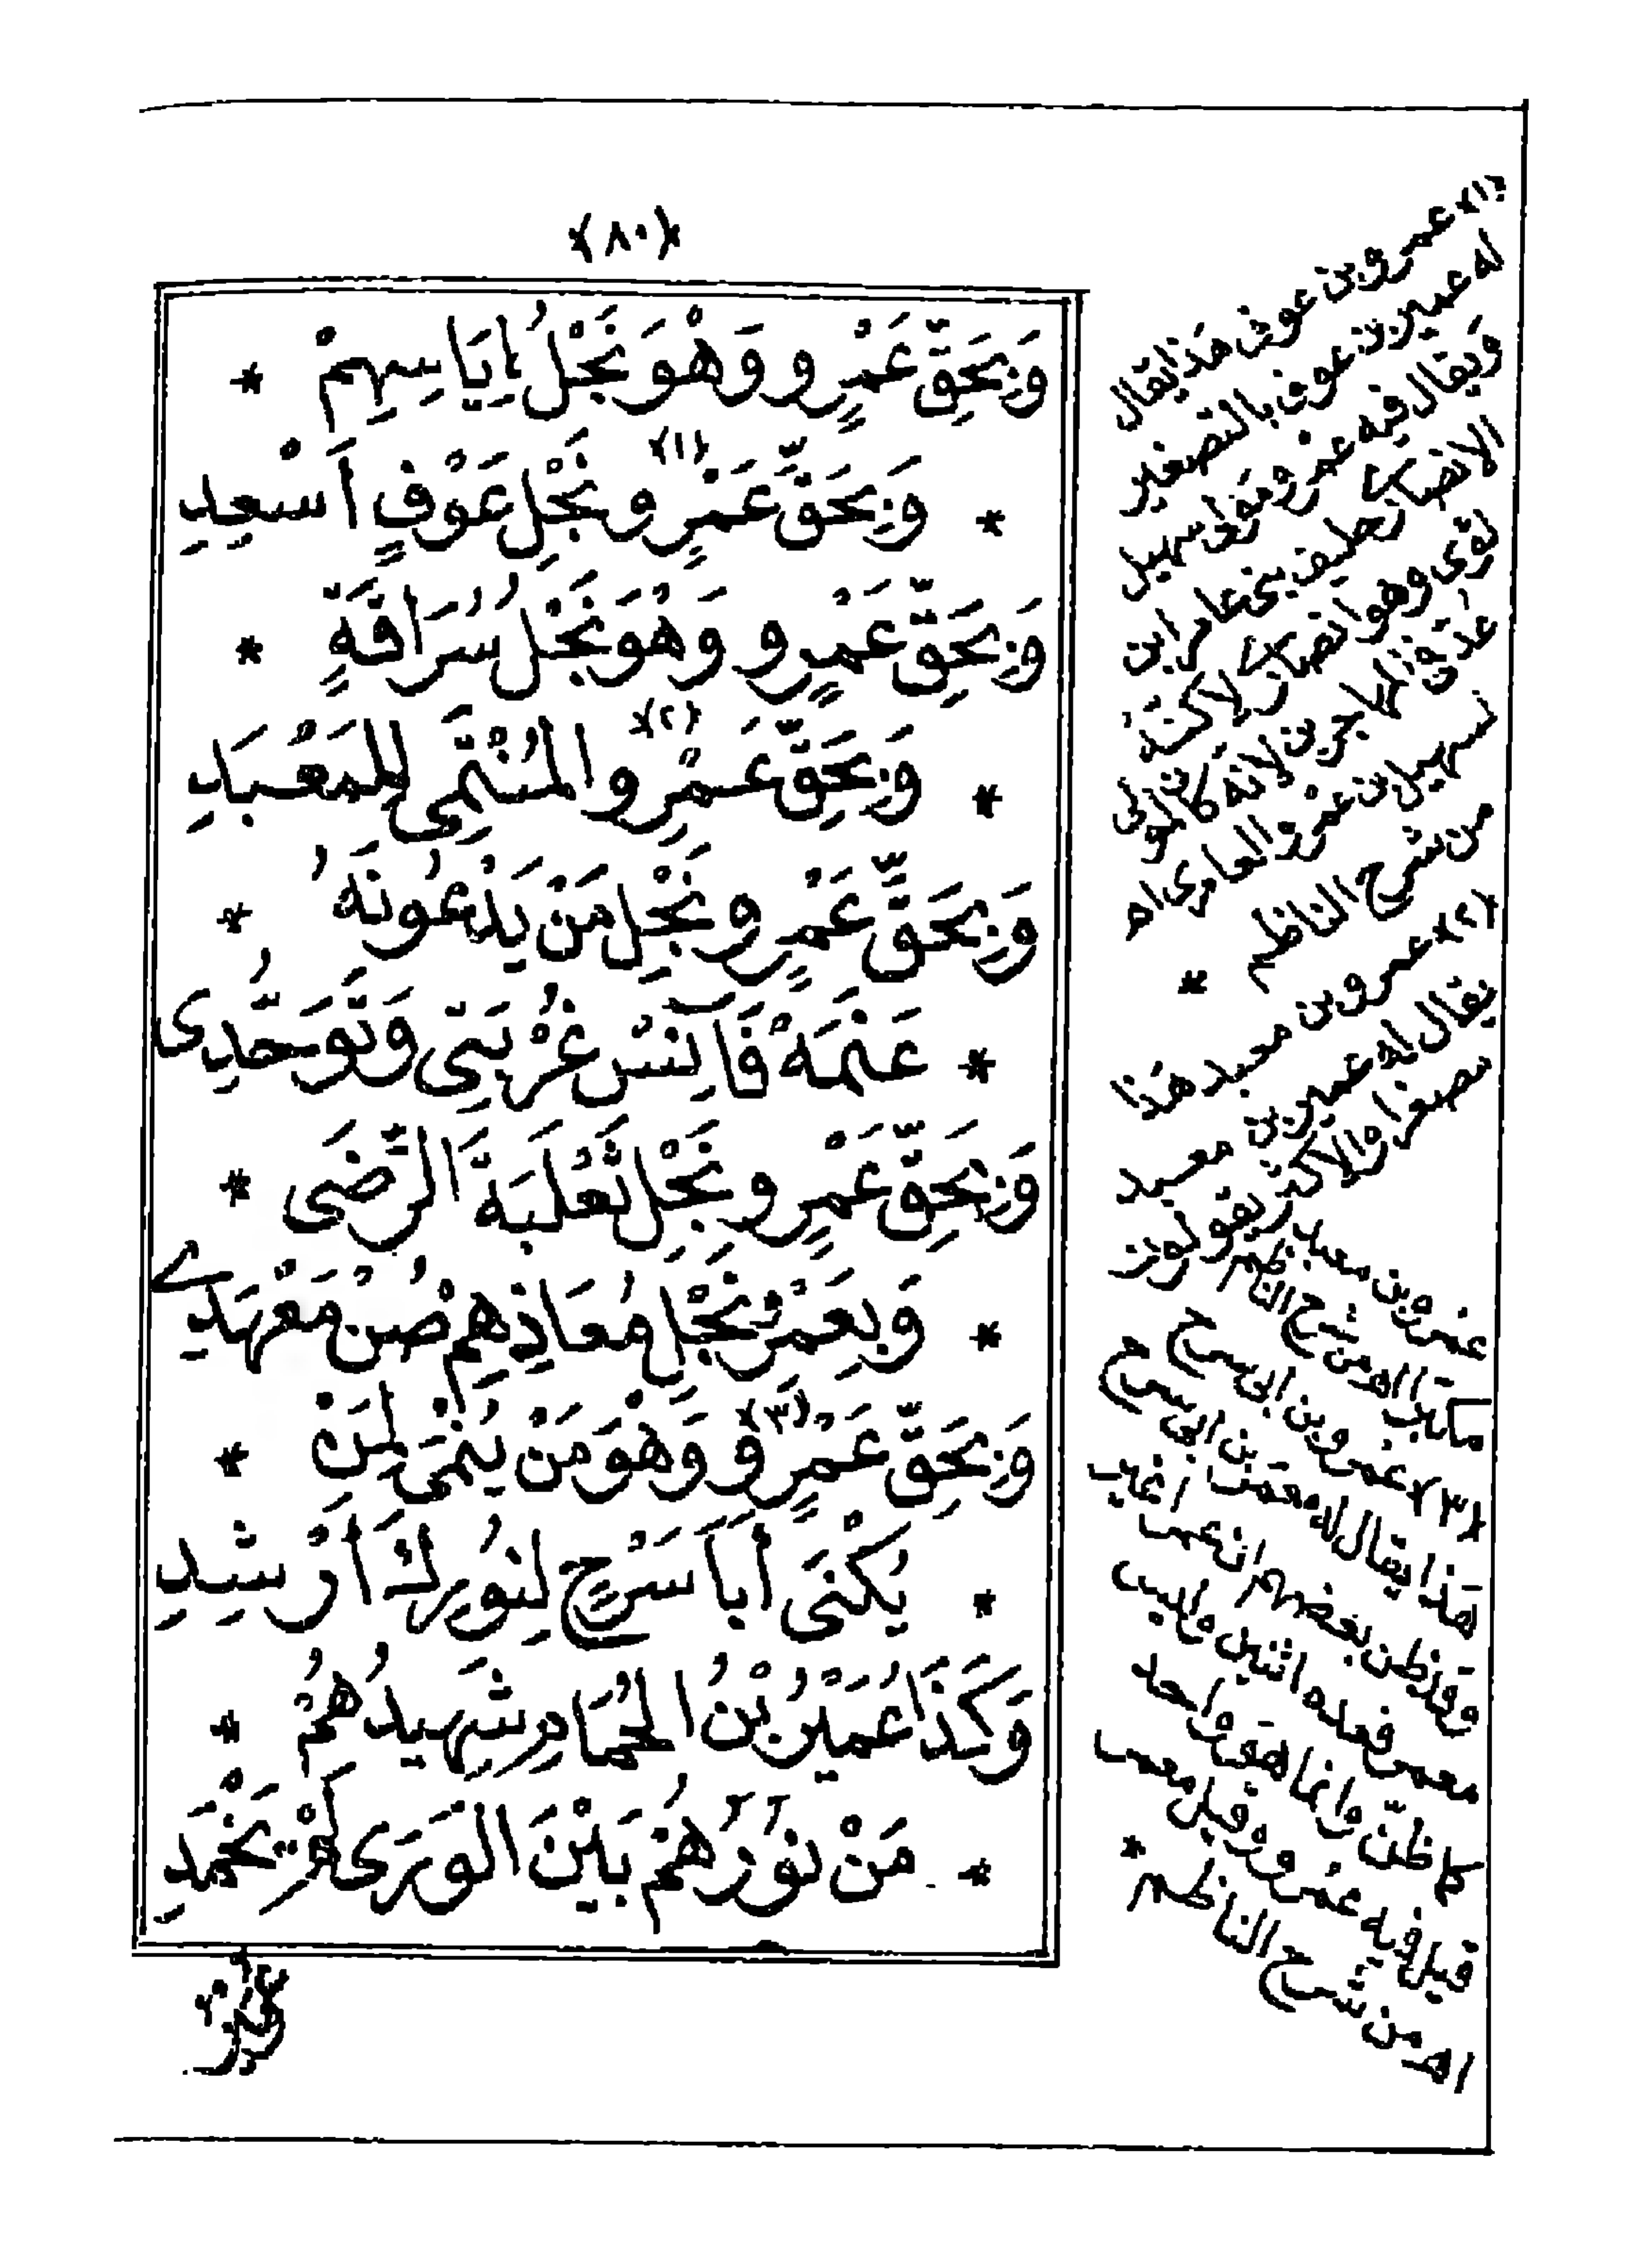 ﴿٨٠﴾
وَبِحَقِّ عَمْرٍو وَهْوَ نَجْلُ إِيَاسِهِمْ *
* وَبِحَقِّ عَمْرِو (١) نَجْلِ عَوْفٍ أَسْعِدِ
وَبِحَقِّ عَمْرٍو وَهُوَ نَجْلُ سُرَاقَةٍ *
* وَبِحَقِّ عَمْرِو (٢) الْمُنْتَمَى لِلْمَعْبَدِ
وَبِحَقِّ عَمْرٍو نَجْلِ مَنْ يَدْعُونَهُ *
* عَنَمَهْ فَآنِسْ غُرْبَتِى وَتَوَحُّدِى
وَبِحَقِّ عَمْرٍو نَجْلِ ثَعْلَبَةَ الرِّضَى *
* وَبِعَمْرٍو نَجْلِ مُعَاذِهِمْ صُنْ مَعْهَدِے
وَبِحَقِّ عَمْرٍو (٣) وَهْوَ مَنْ يُنْمَى لِمَنْ *
* يُكْنَى أَبَا سَرْحٍ لِنُورِكَ أَرْشِدِ
وَكَذَا عُمَيْرُ بْنُ الْحُمَامِ شَهِيدُهُمْ *
* مَنْ نُورُهُمْ بَيْنَ الْوَرَى لَمْ يَخْمَدِ
(١) عمرو بن عوف هذا يقال
له عمير بن عوف بالتصغير
ويقال فيه عمرو مولى سهيل
الانصارى حليف بنى عامر بن
لؤى وهو انصارى لا
لانه كان مولى
سهيل بن عمرو العامرى اه
من شرح الناظم *
(٢) عمرو بن معبد هذا
يقال له عمير بن معبد
مصغرا والاكثر يقولون
عمرو بن معبد
مكبرا اه من شرح الناظم
(٣) عمرو بن ابى سرح
هذا يقال له معمر بن ابى سرح
وقد ظن بعضهم ان عمرا غير
معمر فعده اثنين وليس
كما ظن وانما هو واحد
قيل فيه عمرو وقيل معمر
اه من شرح الناظم *